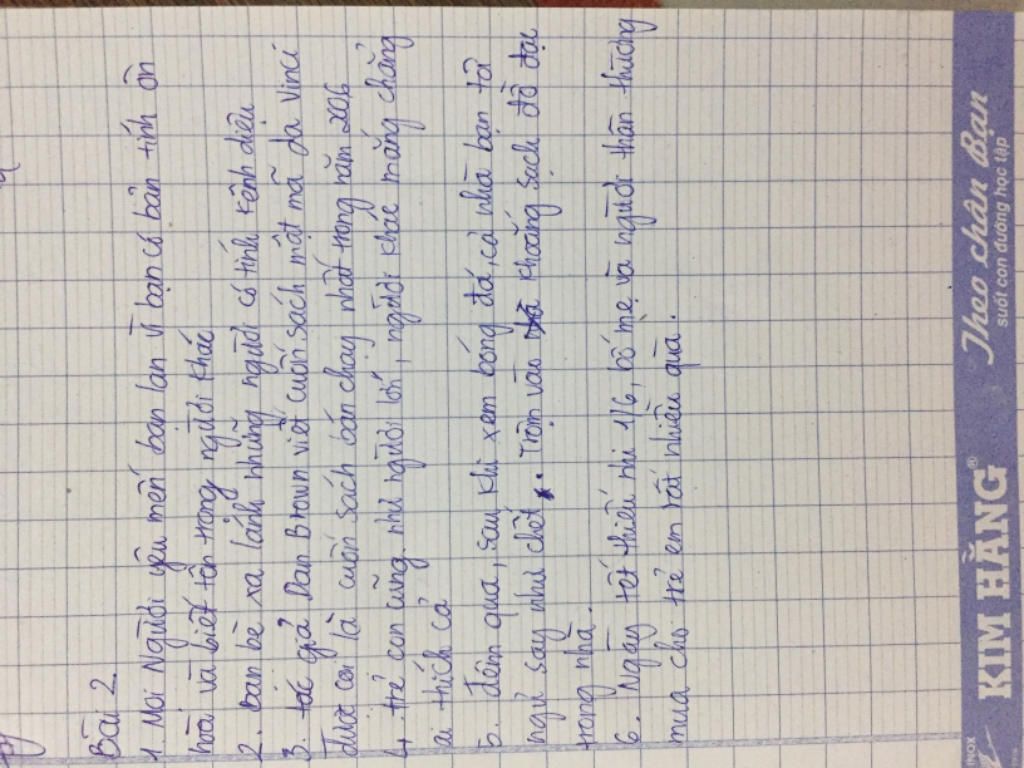 Bài 2
1. Mọi Người yêu mến bạn lan vì bạn có bản tính ôn
hòa và biết tôn trọng người khác
2. bạn bè xa lánh những người có tính kênh diệu
3. tác giả Dan Brown viết cuốn sách mật mã da Vinci
được coi là cuốn sách bán chạy nhất trong năm 2006
4. trẻ con cũng như người lớn, người khác mắng chẳng
ai thích cả
5. đêm qua, sau khi xem bóng đá, cả nhà bạn tôi
ngủ say như chết. Trộm vào khoắng sạch đồ đạc
trong nhà.
6. Ngày tết thiếu nhi 1/6, bố mẹ và người thân thường
mua cho trẻ em rất nhiều quà.
INOX
KIM HẰNG®
Theo chân Bạn
suốt con đường học tập